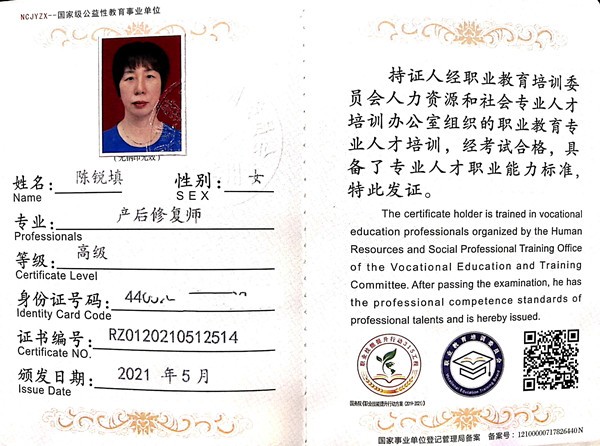 NCJYZX--国家级公益性教育事业单位
(无钢印无效)
姓名: 陈锐填 性别: 女
Name SEX
专业: 产后修复师
Professionals
等级: 高级
Certificate Level
身份证号码:
Identity Card Code
证书编号: RZ0120210512514
Certificate NO.
颁发日期: 2021 年 5 月
Issue Date
持证人经职业教育培训委
员会人力资源和社会专业人才
培训办公室组织的职业教育专
业人才培训，经考试合格，具
备了专业人才职业能力标准，
特此发证。
The certificate holder is trained in vocational
education professionals organized by the Human
Resources and Social Professional Training Office
of the Vocational Education and Training
Committee. After passing the examination, he has
the professional competence standards of
professional talents and is hereby issued.
职业技能提升行动315工程
职业教育培训委员会
Vocational Education Training Board
国务院《职业技能提升行动方案 (2019-2021)》
国家事业单位登记管理局备案 备案号: 12100000717826440N